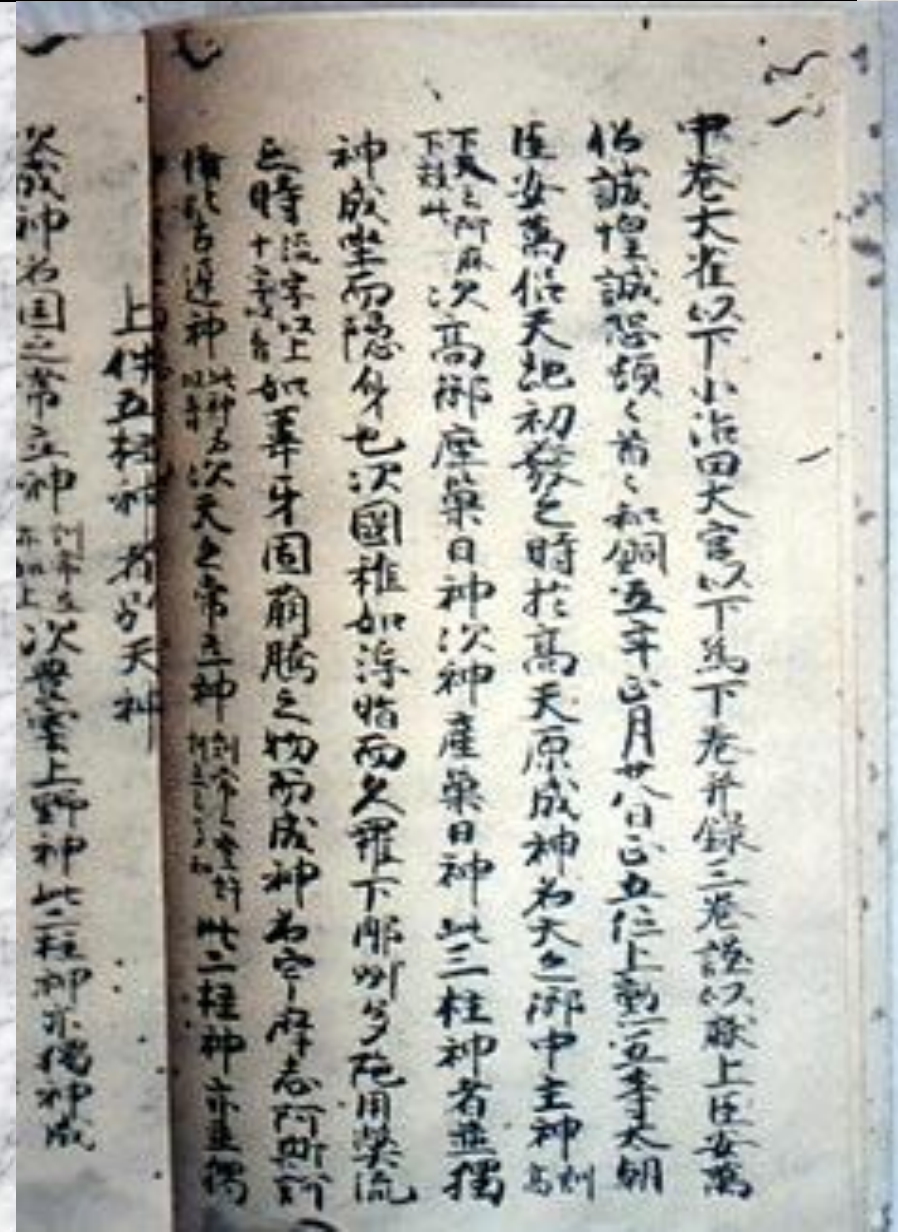 中巻大雀以下小治田大宮以下為下巻并録三巻謹以献上臣安萬
侶誠惶誠恐頓々首々和銅五年正月廿八日正五位上勲五等太朝
臣安萬侶天地初發之時於高天原成神名天之御中主神訓高
下天云阿麻下效此次高御産巣日神次神産巣日神此三柱神者並獨
神成坐而隠身也次國稚如浮脂而久羅下那州多陀用弊流
之時流字以上十字以音如葦牙因萌騰之物而成神名宇摩志阿斯訶
備比古遅神此神名以音次天之常立神訓常云登許訓立云多知此二柱神亦並獨
上件五柱神者別天神
次成神名国之常立神訓常立亦如上次豊雲上野神此二柱神亦獨神成